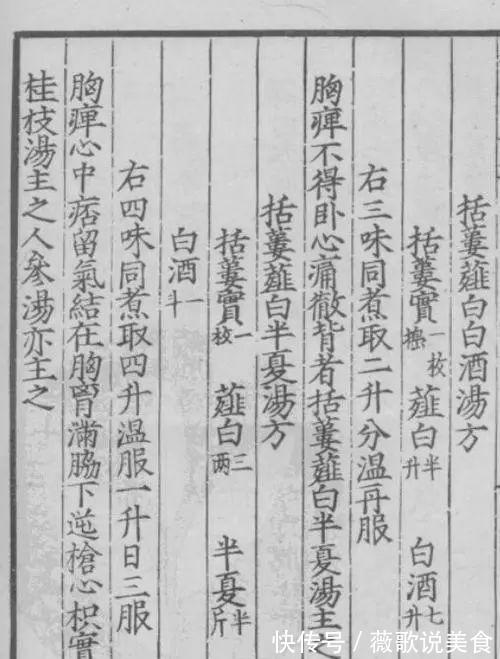 括蔞薤白白酒湯方
括蔞實一枚搗 薤白半升 白酒七升
右三味同煮取二升分温再服
胸痺不得卧心痛徹背者括蔞薤白半夏湯主之
括蔞薤白半夏湯方
括蔞實一枚 薤白三两 半夏半斤
白酒一斗
右四味同煮取四升温服一升日三服
胸痺心中痞留氣結在胸胷滿脇下逆搶心枳實
桂枝湯主之人參湯亦主之
快传号/薇歌说美食